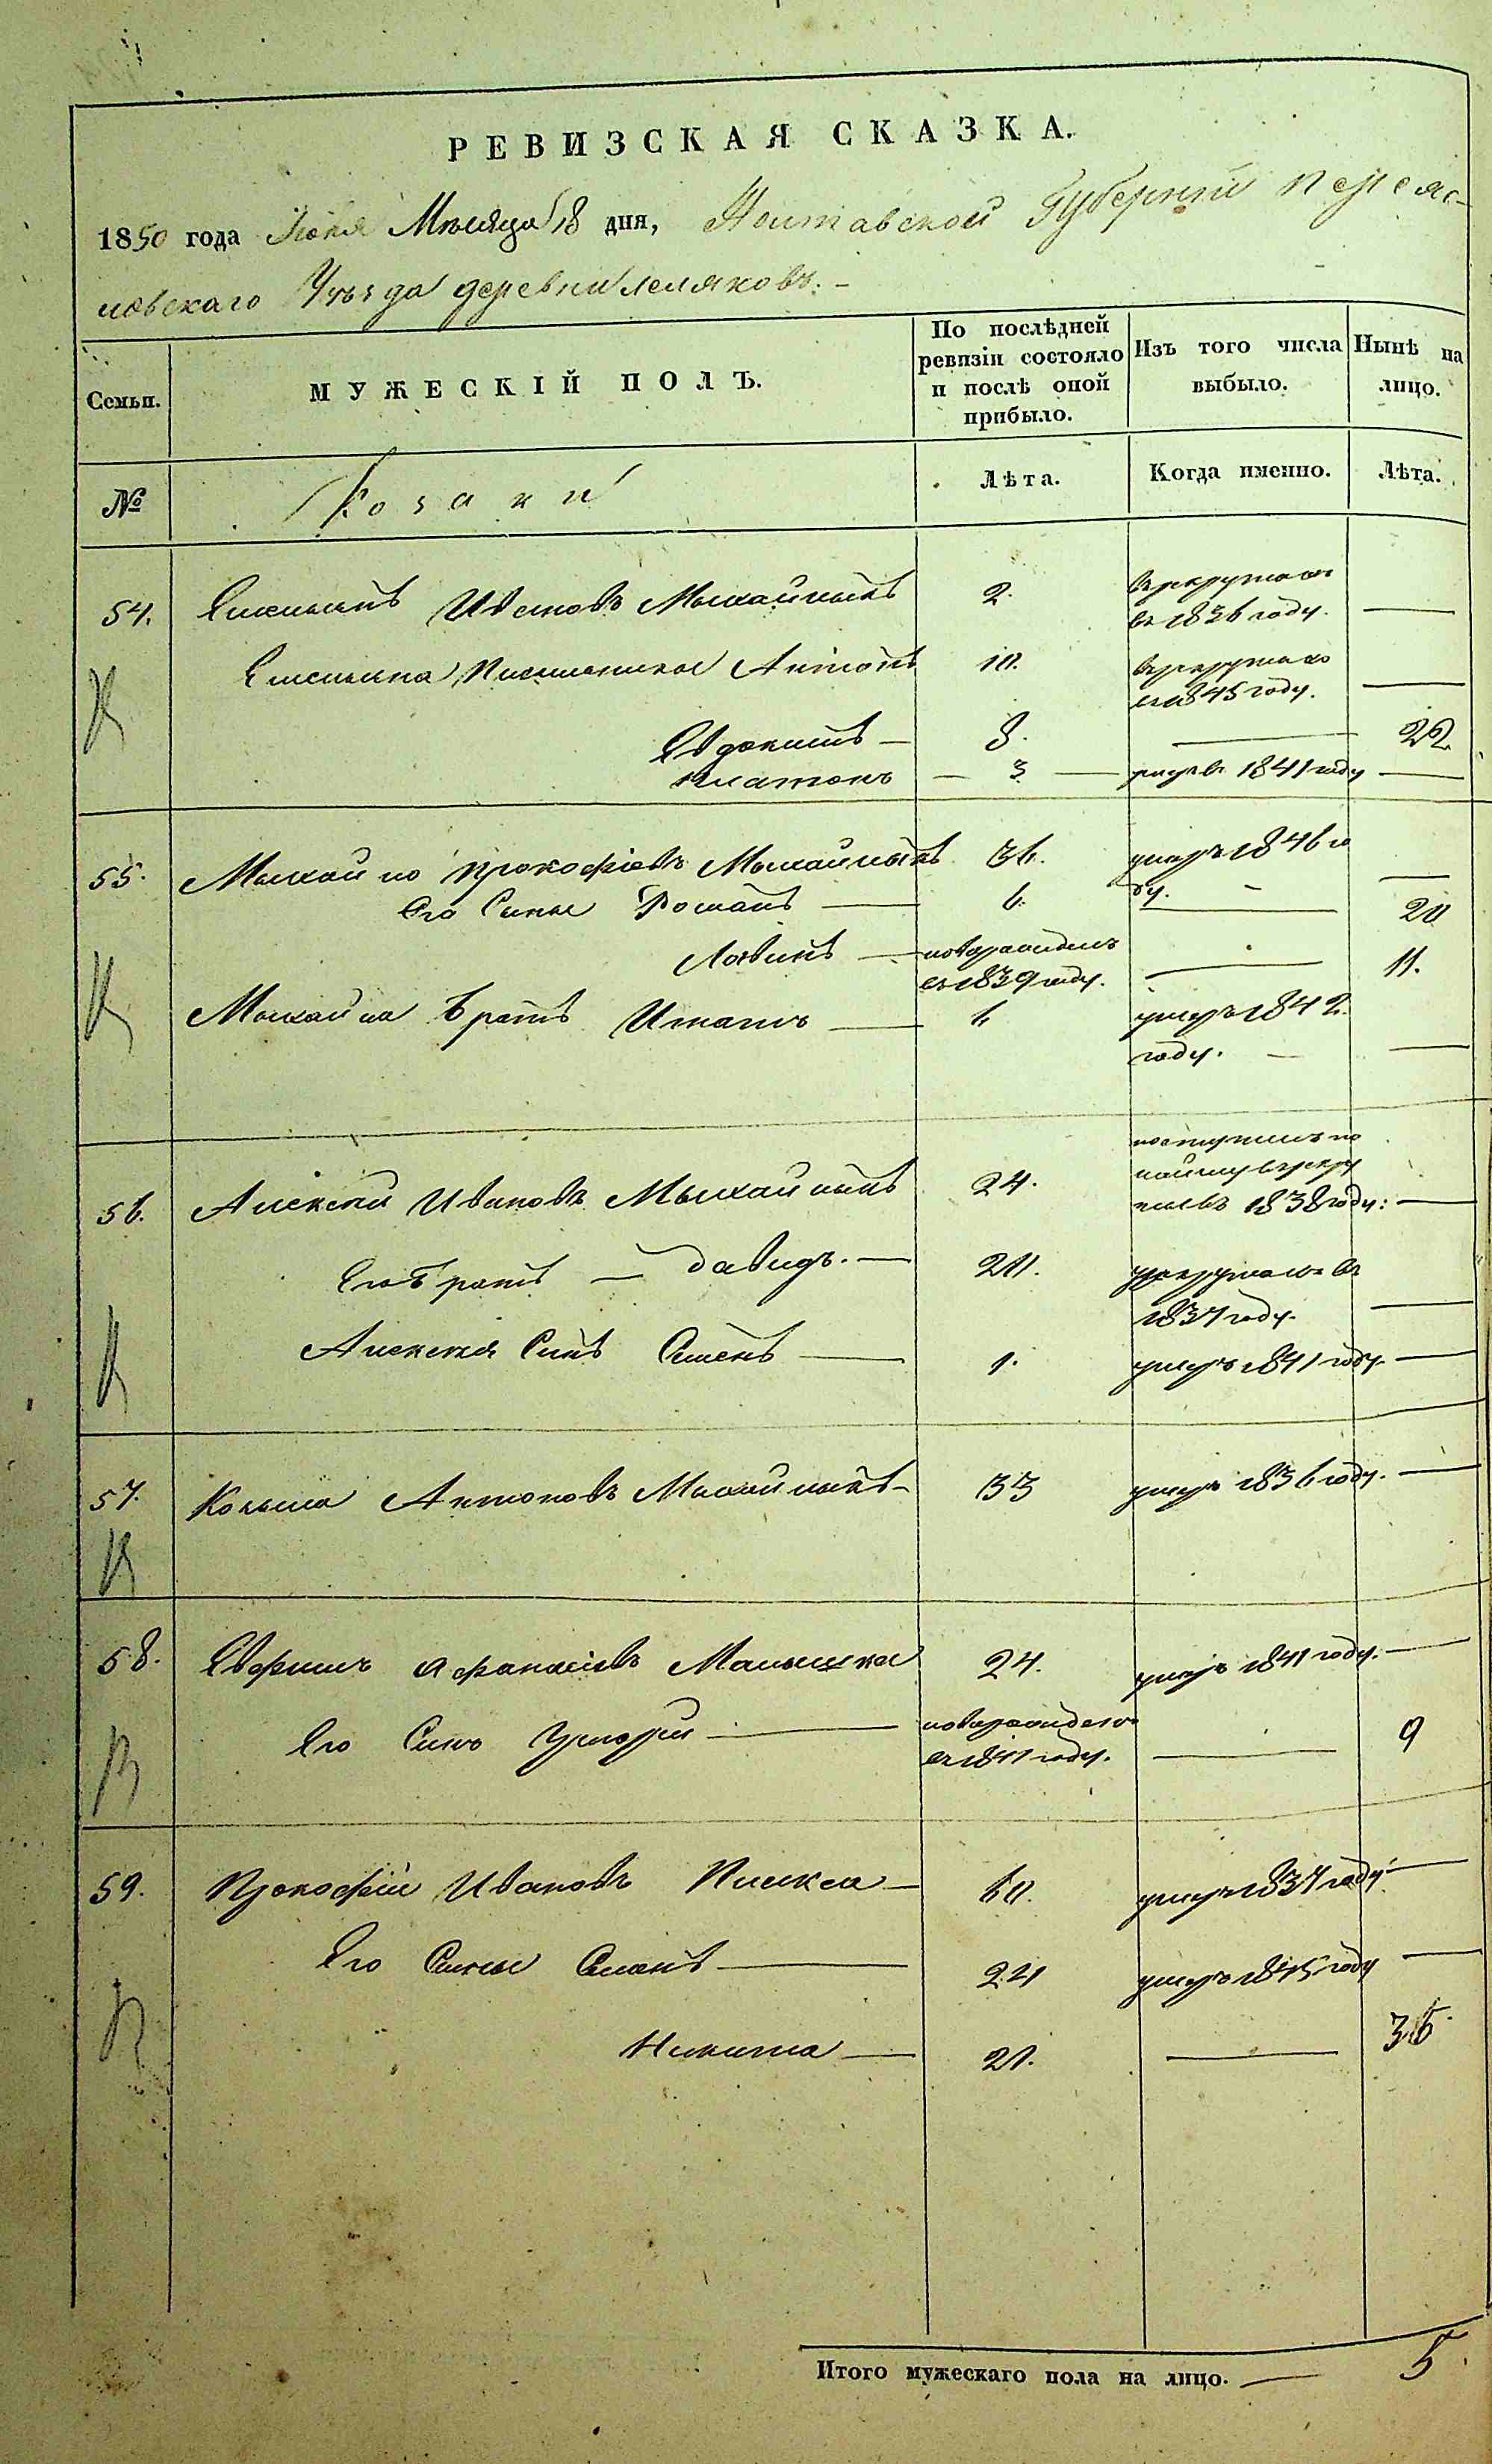 РЕВИЗСКАЯ СКАЗКА.
1850 года Июня Мѣсяца 18 дня, Полтавской Губерніи Переяс-
ловскаго Уѣзда деревни Лемяковъ. -
Семьи.
МУЖЕСКІЙ ПОЛЪ.
По послѣдней ревизіи состояло и послѣ оной прибыло.
Изъ того числа выбыло.
Нынѣ на лицо.
№
Козаки
Лѣта.
Когда именно.
Лѣта.
54. Ивановъ 2. в рекруты
в 1836 году. —
Антонъ 10. в рекруты
в 1845 году. —
Евдокимъ — 8. — 22.
Платонъ — 3 — умеръ в 1841 году —
55. Прокофіевъ 36. умеръ 1846 го
ду. - —
Его Сыны Романъ — 6. — 20
Логвинъ — новорожденъ
в 1839 году. — 11.
братъ Игнатъ — 6 умеръ 1842
году. — —
56. Алексѣй Ивановъ 24. поступилъ по
найму в рекру
ты въ 1838 году: —
Его братъ — Давидъ. — 20. в рекруты в
1837 году. —
Алексѣя Сынъ Семенъ — 1. умеръ 1841 году. —
57. Козьма Антоновъ 33 умеръ 1836 году. —
58. Евфимъ Афанасіевъ Малышка 24. умеръ 1841 году. —
Его Сынъ Григорій — новорожденъ
в 1841 году. — 9
59. Прокофій Ивановъ 60. умеръ 1837 году —
Его Сыны — 24 умеръ 1845 году —
Никита — 21. — 36.
Итого мужескаго пола на лицо. — 5.